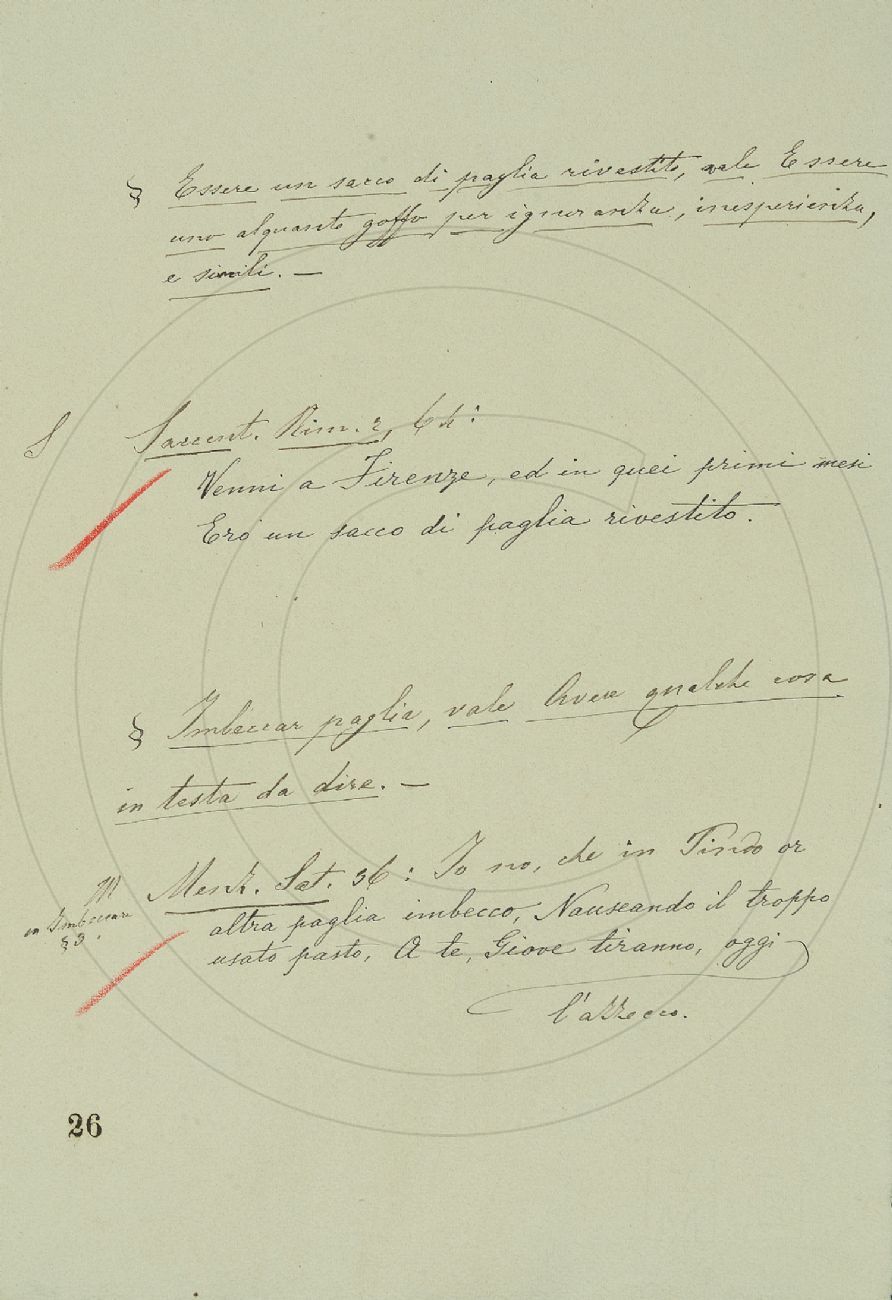 § Essere un sacco di paglia rivestito, vale Essere
uno alquanto goffo per ignoranza, inesperienza,
e simili. —
S Saccent. Rim. 2, 64:
Venni a Firenze, ed in quei primi mesi
Ero un sacco di paglia rivestito.
§ Imbeccar paglia, vale Avere qualche cosa
in testa da dire. —
M Menz. Sat. 36: Io no, che in Pindo or
in Imbeccare altra paglia imbecco, Nauseando il troppo
§ 3. usato pasto, A te, Giove tiranno, oggi
l'azzecco.
26